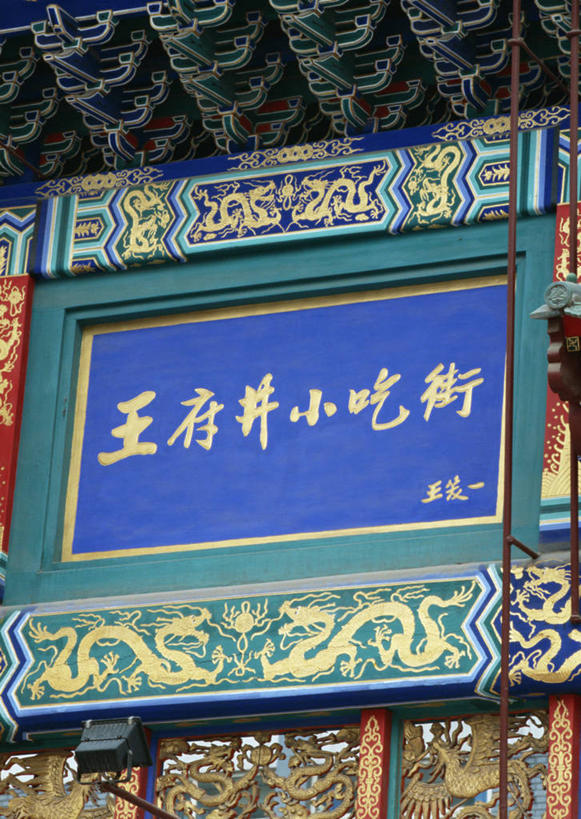 王府井小吃街
王茇一